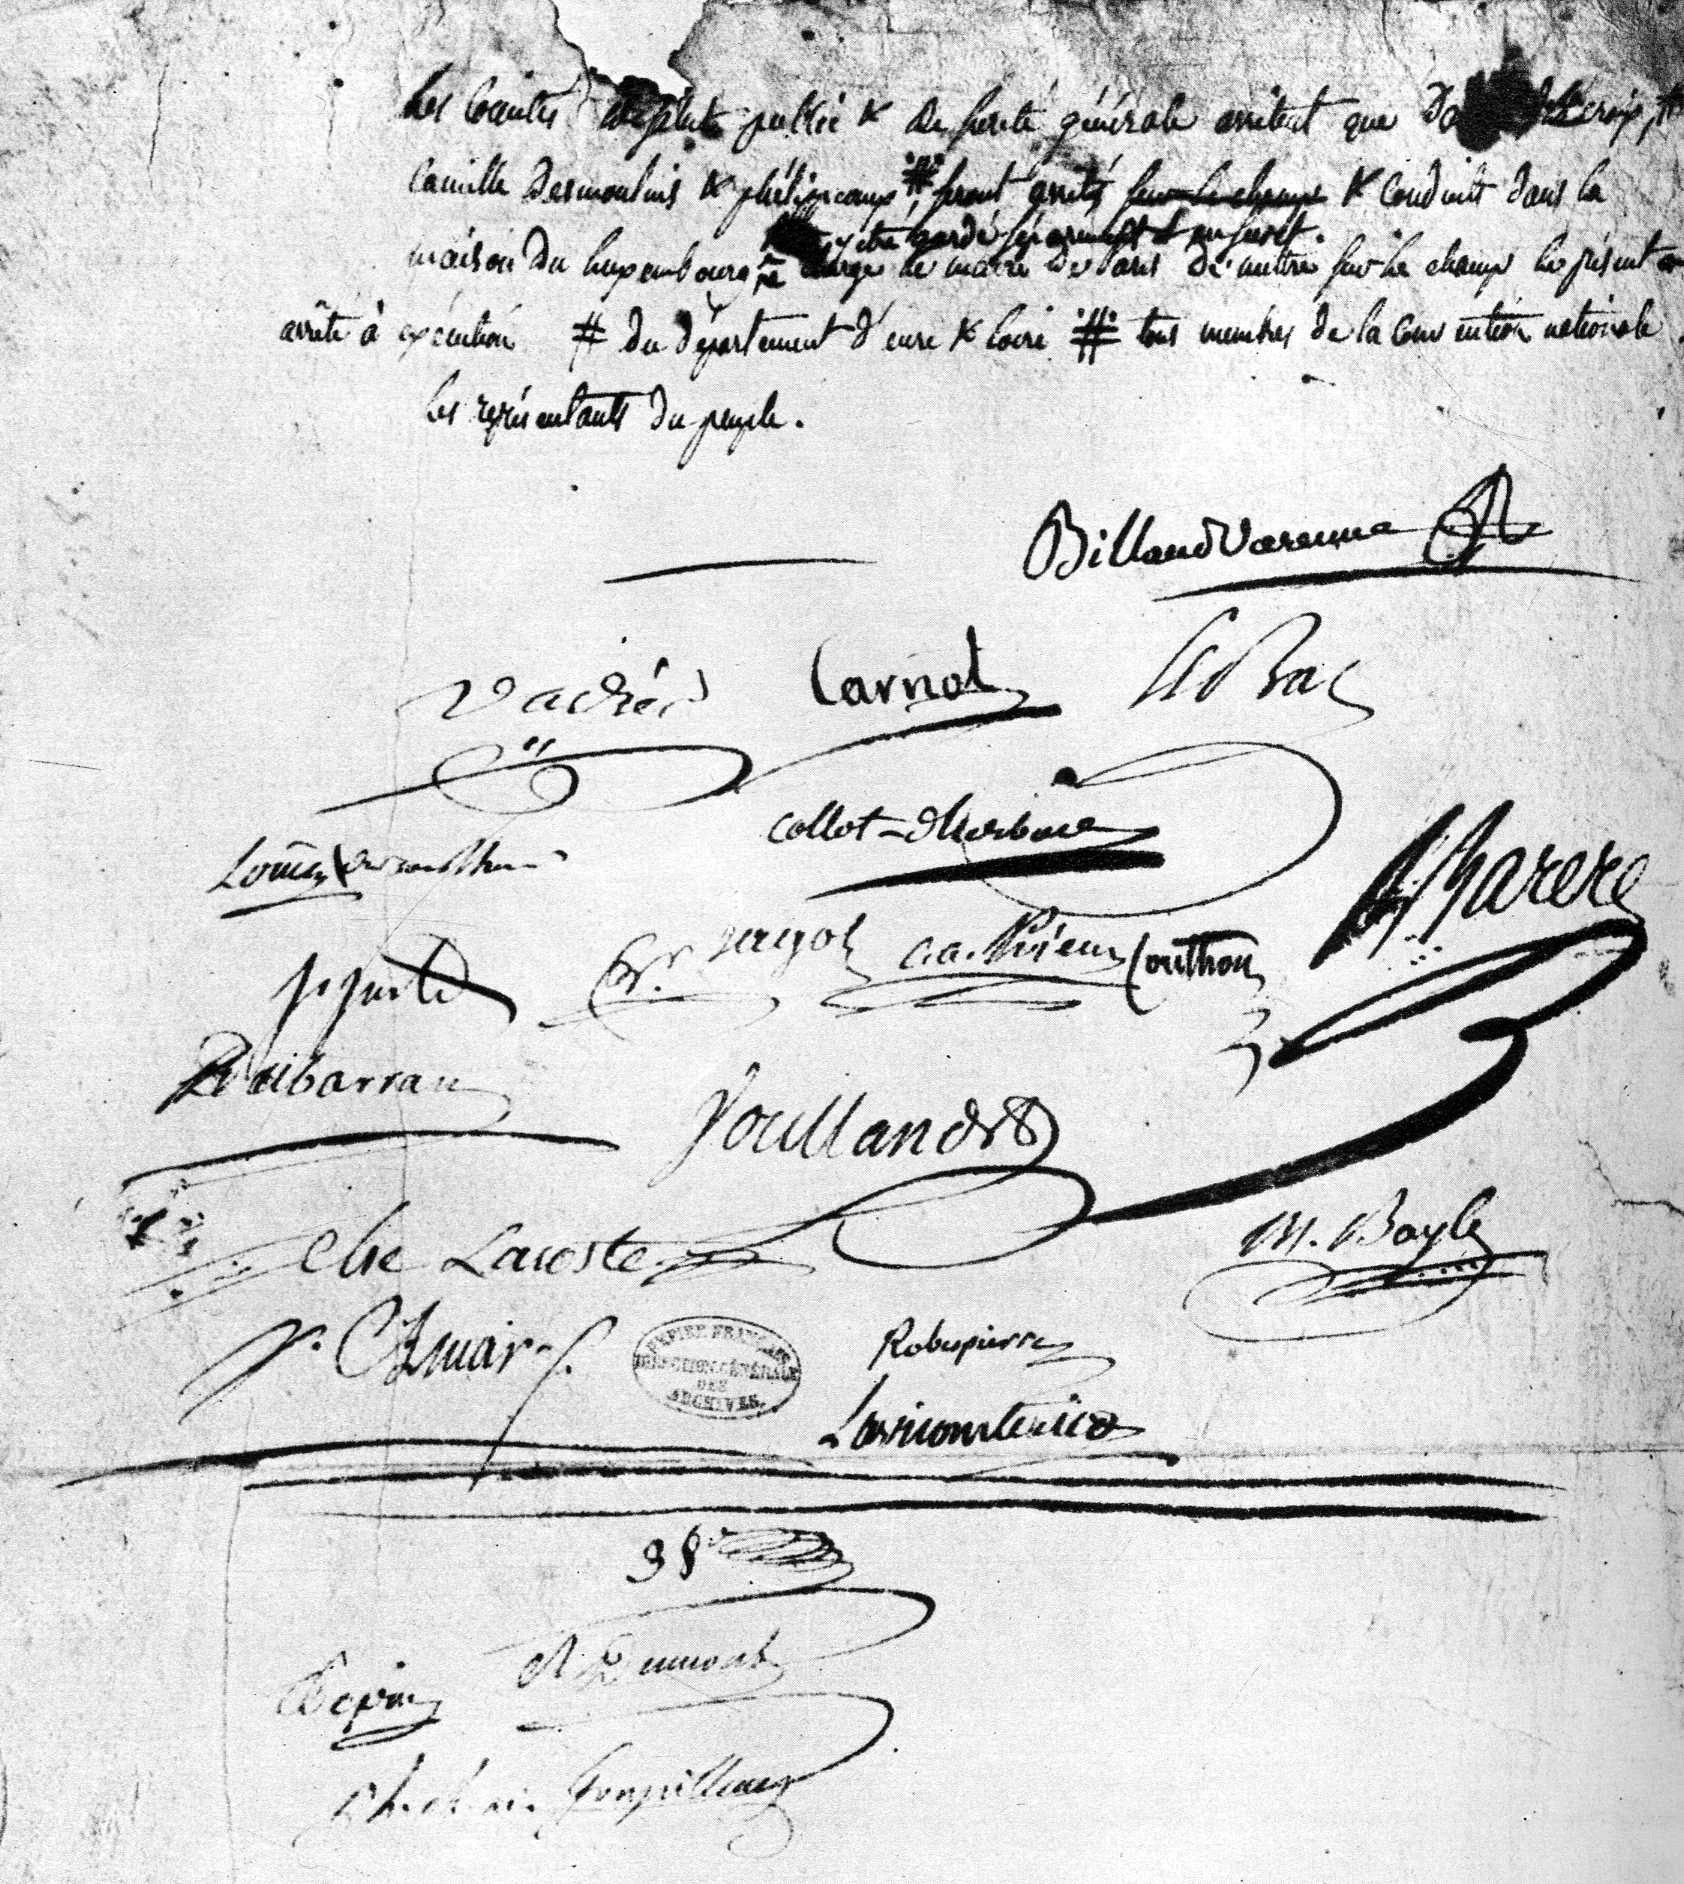 Les Comités de salut public & de sureté générale arretent que Da Lacroix, #
Camille Desmoulins & phélippeaux #, seront arretés sur le champ & conduits dans la
pour y être gardé séparement & au secret.
maison du Luxembourg charge le maire de Paris de mettre sur le champ le présent
arrêté à exécution # du département d'eure & loire # tous membres de la Convention nationale.
Les représentants du peuple.
Billaud Varenne
Vadier Carnot Le Bas
Louis du bas Rhin Collot-dherbois
B Barere
St Just Jagot C.a. Prieur Couthon
Voulland
elie Lacoste M. Bayle
Amar
EMPIRE FRANÇAIS
DIRECTION GÉNÉRALE
DES
ARCHIVES.
Robespierre
98